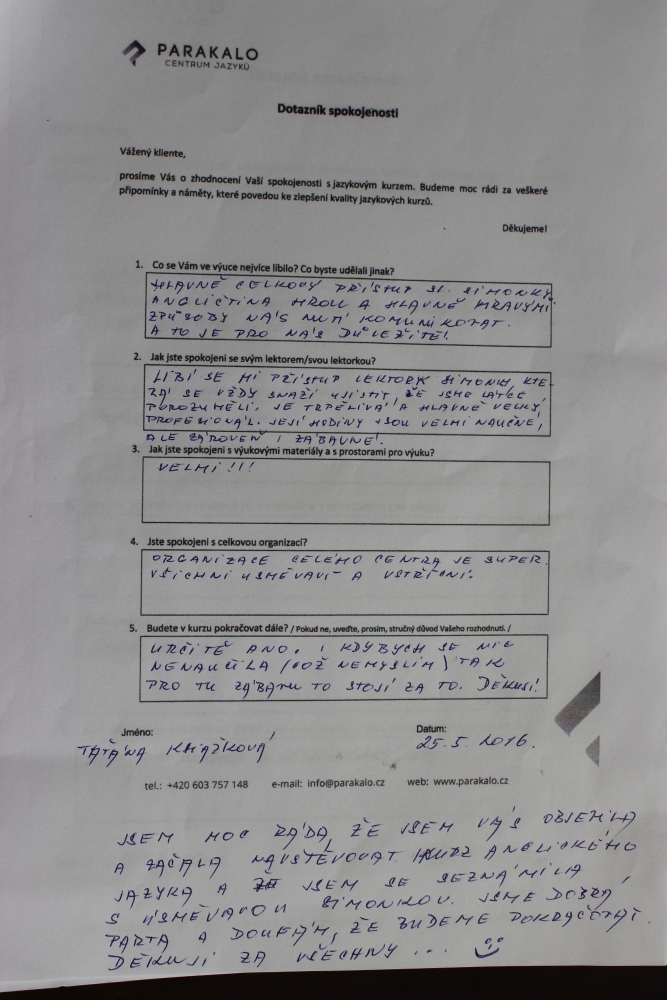 PARAKALO
CENTRUM JAZYKŮ
Dotazník spokojenosti
Vážený kliente,
prosíme Vás o zhodnocení Vaší spokojenosti s jazykovým kurzem. Budeme moc rádi za veškeré
připomínky a náměty, které povedou ke zlepšení kvality jazykových kurzů.
Děkujeme!
1. Co se Vám ve výuce nejvíce líbilo? Co byste udělali jinak?
HLAVNĚ CELKOVÝ PŘÍSTUP SL. SIMONKY,
ANGLIČTINA HROU A HLAVNĚ HRAVÝMI
ZPŮSOBY NÁS NUTÍ KOMUNIKOVAT.
A TO JE PRO NÁS DŮLEŽITÉ!
2. Jak jste spokojeni se svým lektorem/svou lektorkou?
LÍBÍ SE MI PŘÍSTUP LEKTORKY SIMONKY, KTE-
RÁ SE VŽDY SNAŽÍ UJISTIT, ŽE JSME LÁTCE
POROZUMĚLI. JE TRPĚLIVÁ A HLAVNĚ VELKÝ
PROFESIONÁL. JEJÍ HODINY JSOU VELMI NAUČNÉ,
ALE ZÁROVEŇ I ZÁBAVNÉ.
3. Jak jste spokojeni s výukovými materiály a s prostorami pro výuku?
VELMI!!!
4. Jste spokojeni s celkovou organizací?
ORGANIZACE CELÉHO CENTRA JE SUPER.
VŠICHNI USMĚVAVÍ A VSTŘÍCNÍ.
5. Budete v kurzu pokračovat dále? / Pokud ne, uveďte, prosím, stručný důvod Vašeho rozhodnutí. /
URČITĚ ANO. I KDYBYCH SE NIC
NENAUČILA (COŽ NEMYSLÍM) TAK
PRO TU ZÁBAVU TO STOJÍ ZA TO. DĚKUJI!
Jméno: Datum:
TAŤÁNA KNIAŽKOVÁ 25.5. 2016.
tel.: +420 603 757 148 e-mail: info@parakalo.cz web: www.parakalo.cz
JSEM MOC RÁDA, ŽE JSEM VÁS OBJEVILA
A ZAČALA NAVŠTĚVOVAT KURZ ANGLICKÉHO
JAZYKA A JSEM SE SEZNÁMILA
S ÚSMĚVAVOU SIMONKOU. JSME DOBRÁ
PARTA A DOUFÁM, ŽE BUDEME POKRAČOVAT.
DĚKUJI ZA VŠECHNY ...